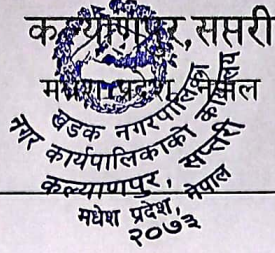 कल्याणपुर, सप्तरी
मधेश प्रदेश, नेपाल
खडक नगरपालिका
नगर कार्यपालिकाको कार्यालय
कल्याणपुर, सप्तरी
मधेश प्रदेश, नेपाल
२०७३